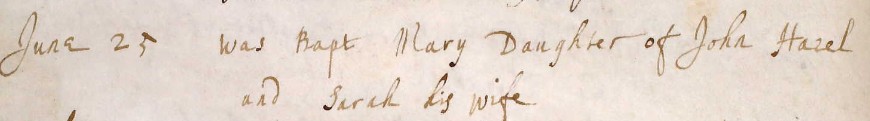 June 25 was Bapt Mary Daughter of John Hazel
and Sarah his wife